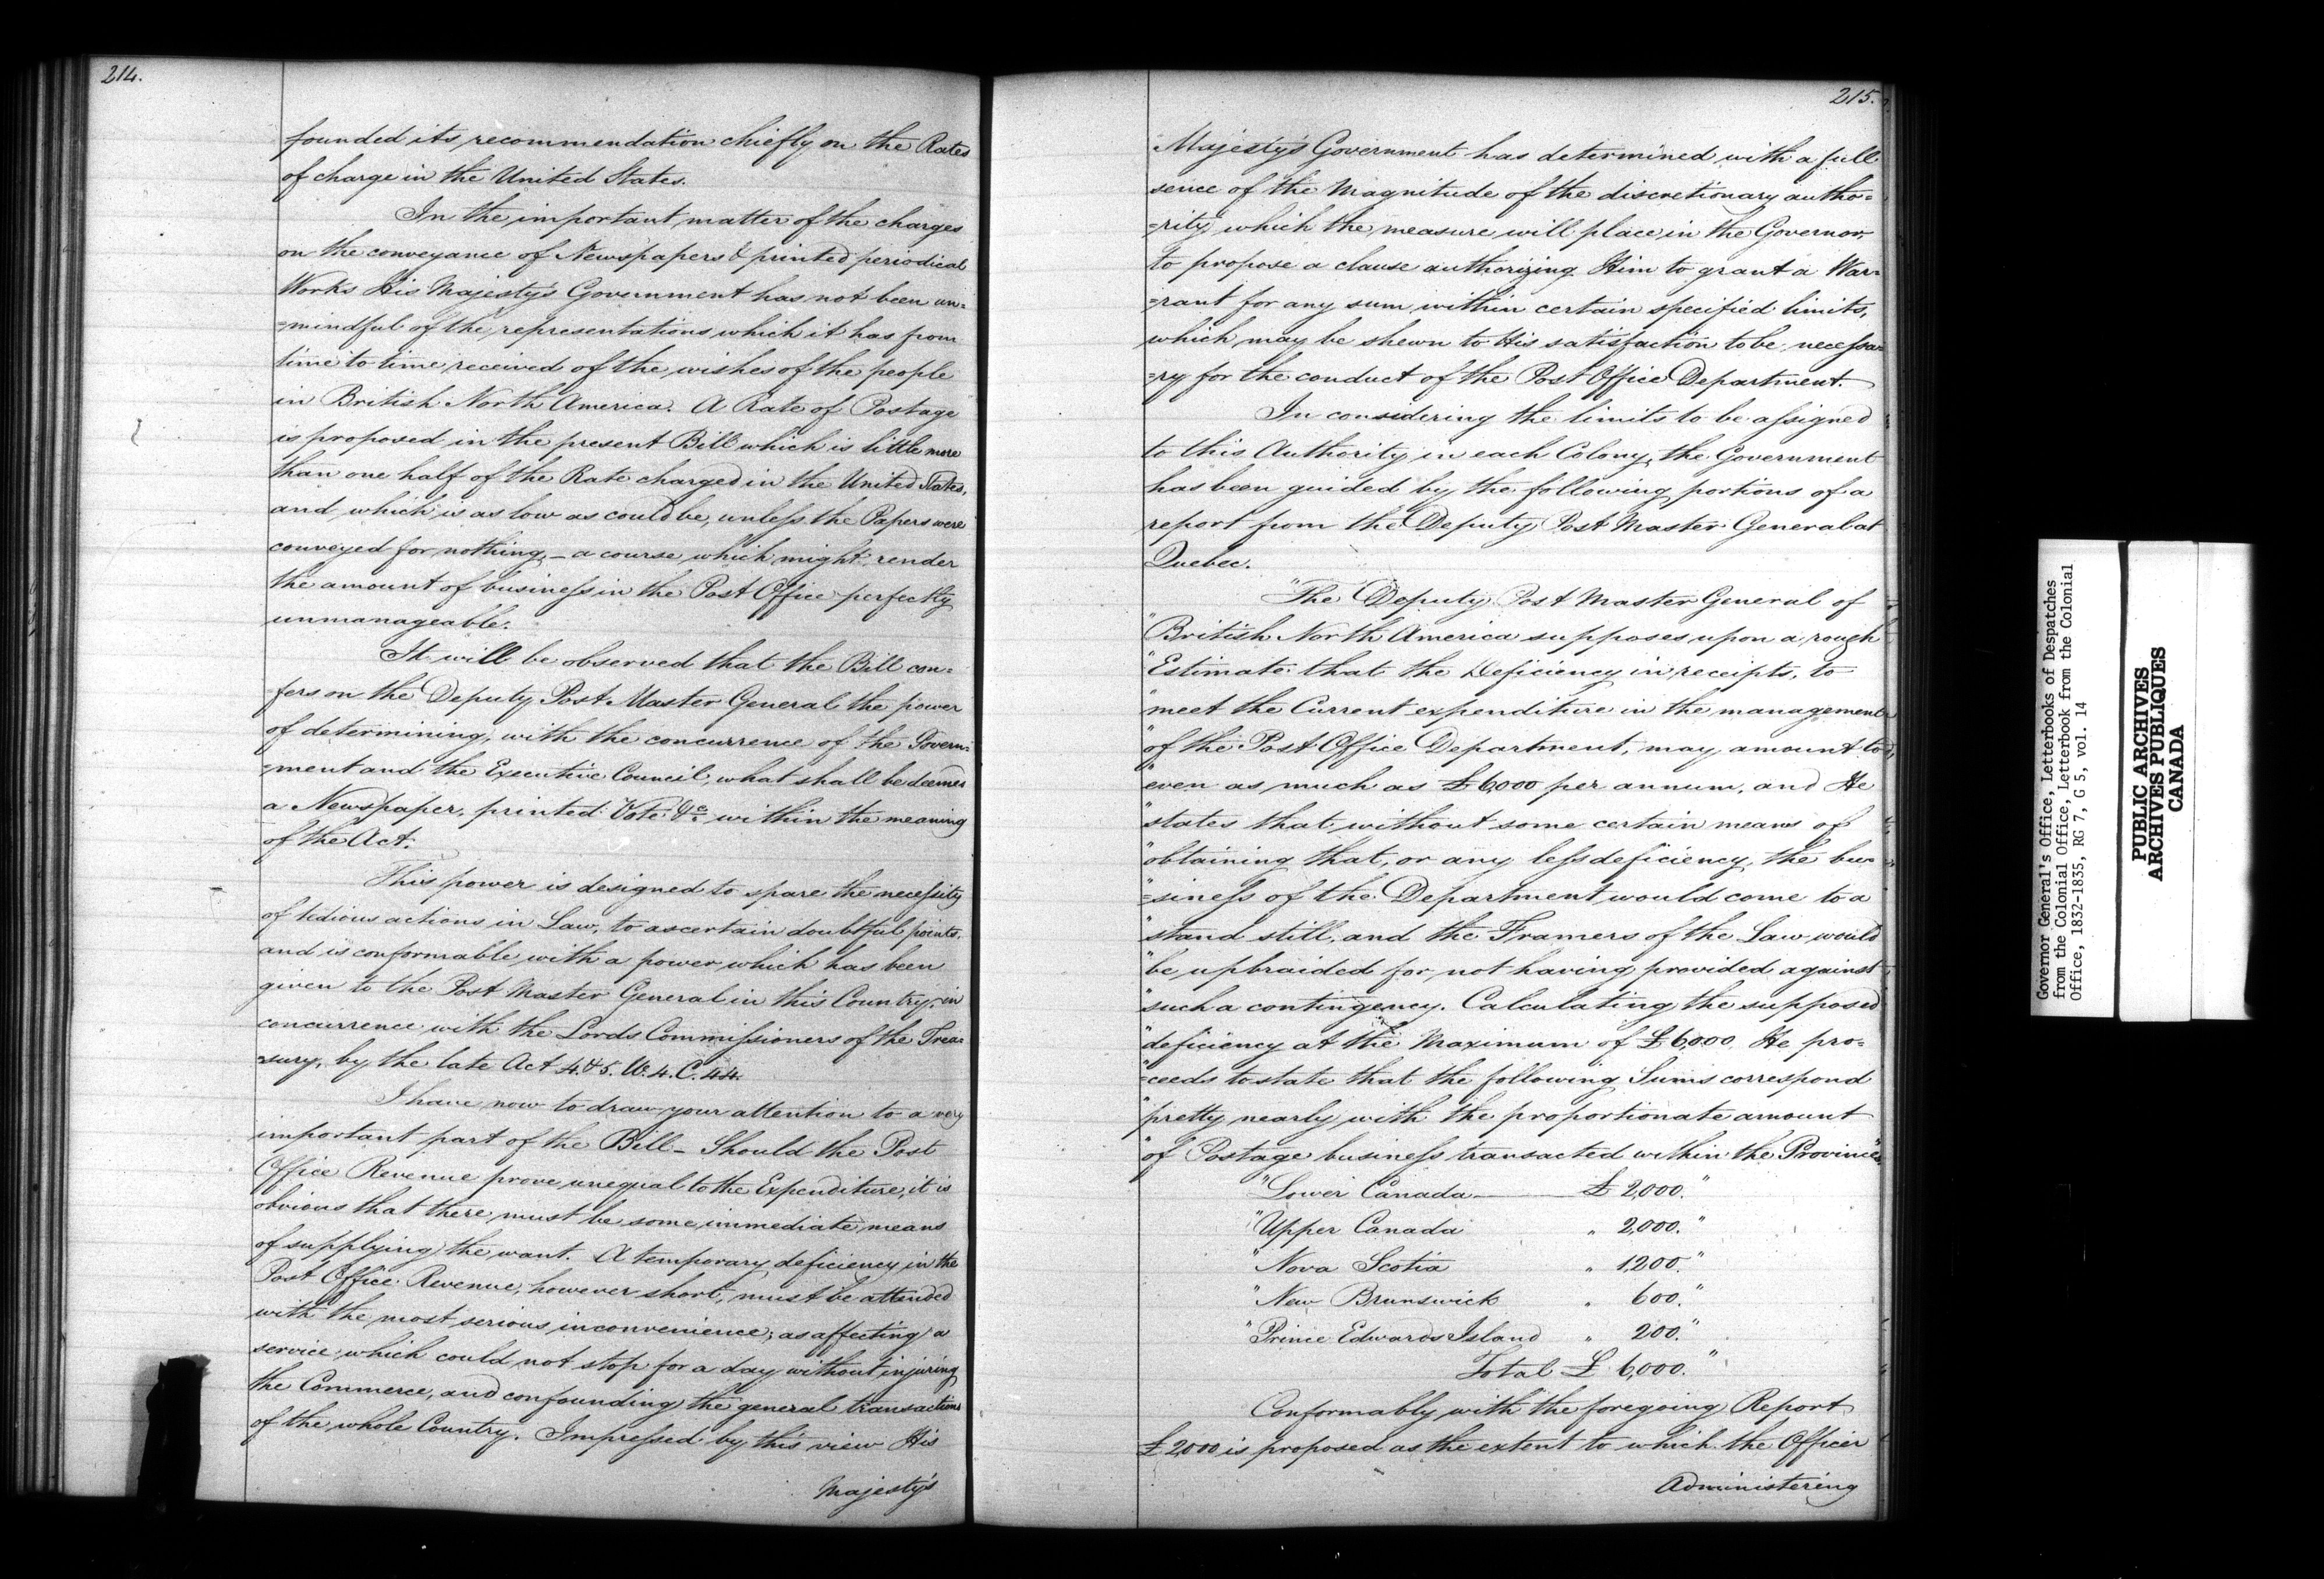 214.
founded its recommendation chiefly on the Rates
of charge in the United States.
In the important matter of the charges
on the conveyance of Newspapers & printed periodical
Works His Majesty's Government has not been un=
=mindful of the representations which it has from
time to time received of the wishes of the people
in British North America. A Rate of Postage
is proposed in the present Bill which is little more
than one half of the Rate charged in the United States,
and which is as low as could be, unless the Papers were
conveyed for nothing, – a course which might render
the amount of business in the Post Office perfectly
unmanageable.
It will be observed that the Bill con=
=fers on the Deputy Post Master General the power
of determining, with the concurrence of the Govern=
=ment and the Executive Council, what shall be deemed
a Newspaper, printed Vote &c. within the meaning
of the Act.
This power is designed to spare the necessity
of tedious actions in Law, to ascertain doubtful points,
and is conformable with a power which has been
given to the Post Master General in this Country, in
concurrence with the Lords Commissioners of the Trea=
=sury, by the late Act 4. & 5. W. 4. C. 44.
I have now to draw your attention to a very
important part of the Bill – Should the Post
Office Revenue prove unequal to the Expenditure, it is
obvious that there must be some immediate means
of supplying the want. A temporary deficiency in the
Post Office Revenue, however short, must be attended
with the most serious inconvenience, as affecting a
service which could not stop for a day without injuring
the Commerce, and confounding the general transactions
of the whole Country. Impressed by this view His
Majesty's
215.
Majesty's Government has determined with a full
sence of the Magnitude of the discretionary autho=
=rity which the measure will place in the Governor,
to propose a clause authorizing Him to grant a War=
=rant for any sum within certain specified limits,
which may be shewn to His satisfaction to be necessa=
=ry for the conduct of the Post Office Department.
In considering the limits to be assigned
to this Authority in each Colony, the Government
has been guided by the following portions of a
report from the Deputy Post Master General at
Quebec.
"The Deputy Post Master General of
"British North America supposes upon a rough
"Estimate that the Deficiency in receipts, to
"meet the Current expenditure in the management
"of the Post Office Department, may amount to,
"even as much as £6,000 per annum, and He
"states that without some certain means of
"obtaining that, or any less deficiency, the bu=
"=siness of the Department would come to a
"stand still, and the Framers of the Law would
"be upbraided for not having provided against
"such a contingency. Calculating the supposed
"deficiency at the Maximum of £6,000, He pro=
"=ceeds to state that the following Sums correspond
"pretty nearly with the proportionate amount
"of Postage business transacted within the Provinces,
"Lower Canada — £ 2,000."
"Upper Canada " 2,000."
"Nova Scotia " 1,200."
"New Brunswick " 600."
"Prince Edwards Island " 200."
Total £ 6,000."
Conformably with the foregoing Report
£2,000 is proposed as the extent to which the Officer
Administering
Governor General's Office, Letterbooks of Despatches
from the Colonial Office, Letterbook from the Colonial
Office, 1832-1835, RG 7, G 5, vol. 14
PUBLIC ARCHIVES
ARCHIVES PUBLIQUES
CANADA